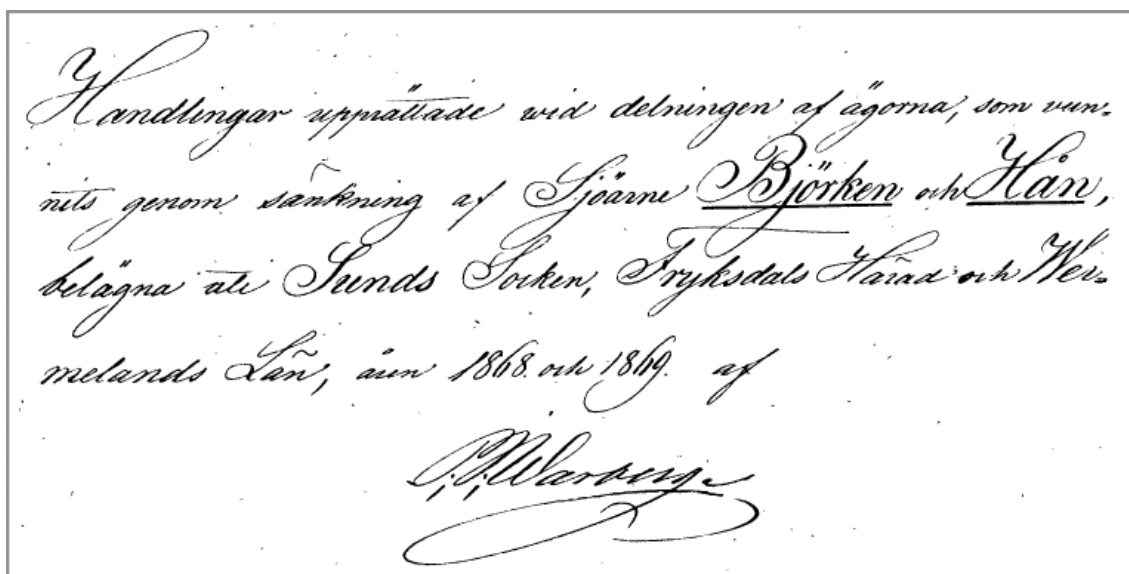 Handlingar upprättade wid delningen af ägorna, som vun-
nits genom sänkning af Sjöarne Björken och Hån,
belägna uti Sunds Socken, Fryksdals Härad och Wer-
melands Län, åren 1868 och 1869. af
Warberg